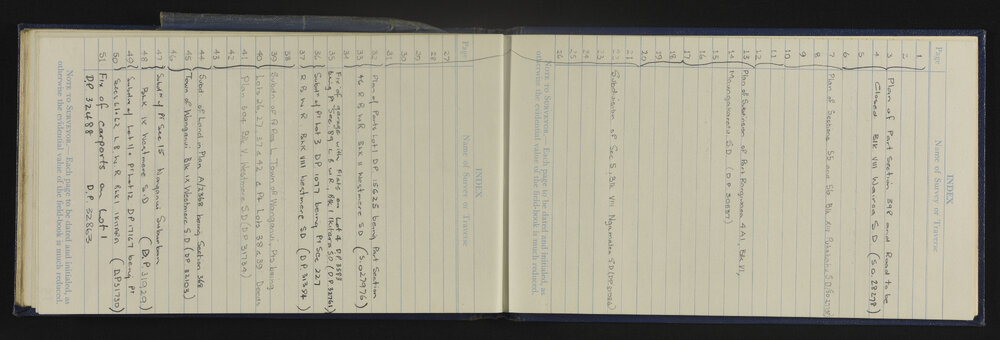 INDEX
Page Name of Survey or Traverse
1
2
3 Plan of Part Section 398 and Road to be
4 Closed Blk VIII Wairoa S D (S.O. 28278)
5
6
7 Plan of Sections 55 and 56 Blk
8
9
10
11
12
13 Plan of Subdivision of Part 4A1, Blk VI,
14 Maungakaretu S.D (D.P 30887)
15
16
17
18
19
20
21
22 Subdivision of Sec 5, Blk VII Ngamatea S.D
23
24
25
26
NOTE TO SURVEYOR.—Each page to be dated and initialed, as
otherwise the evidential value of the field-book is much reduced.
INDEX
Page Name of Survey or Traverse
27
28
29
30
31
32 Plan of Part Lot 1 D.P. 15625 being Part Section
33 46 R B W R Blk II Westmere S D (S.O. 27976)
34 Fix of garage with Flats on Lot 4 D.P. 3583
35 being Pt Sec 89 L B W R, Blk I Ikitara S.D
36 Subdn of Pt Lot 3 DP 1097 being Pt Sec 227
37 R B W R Blk VIII Westmere SD (D.P. 31354)
38
39 Subdn of Town of Wanganui, being
40 Lots 26, 27, 37 & 42 & Pt Lots 38 & 39 Deeds
41 Plan 604 Blk V. Westmere S.D (D.P. 31734)
42
43
44 Subd. of land in Plan A/2368 being Section 368
45 Town of Wanganui Blk IX Westmere S.D (D.P. 32103)
46
47 Subdn of Pt Sec 15 Wanganui Suburban
48 Blk IX Westmere S.D (D.P. 31929)
49 Subdn of Lot 11 & Pt Lot 12 DP 17167 being Pt
50 Secs 61 & 62 L B W R Blk I Ikitara (D.P 31730)
51 Fix of carports on Lot 1
D.P. 32488 D.P. 32863
NOTE TO SURVEYOR.—Each page to be dated and initialed, as
otherwise the evidential value of the field-book is much reduced.